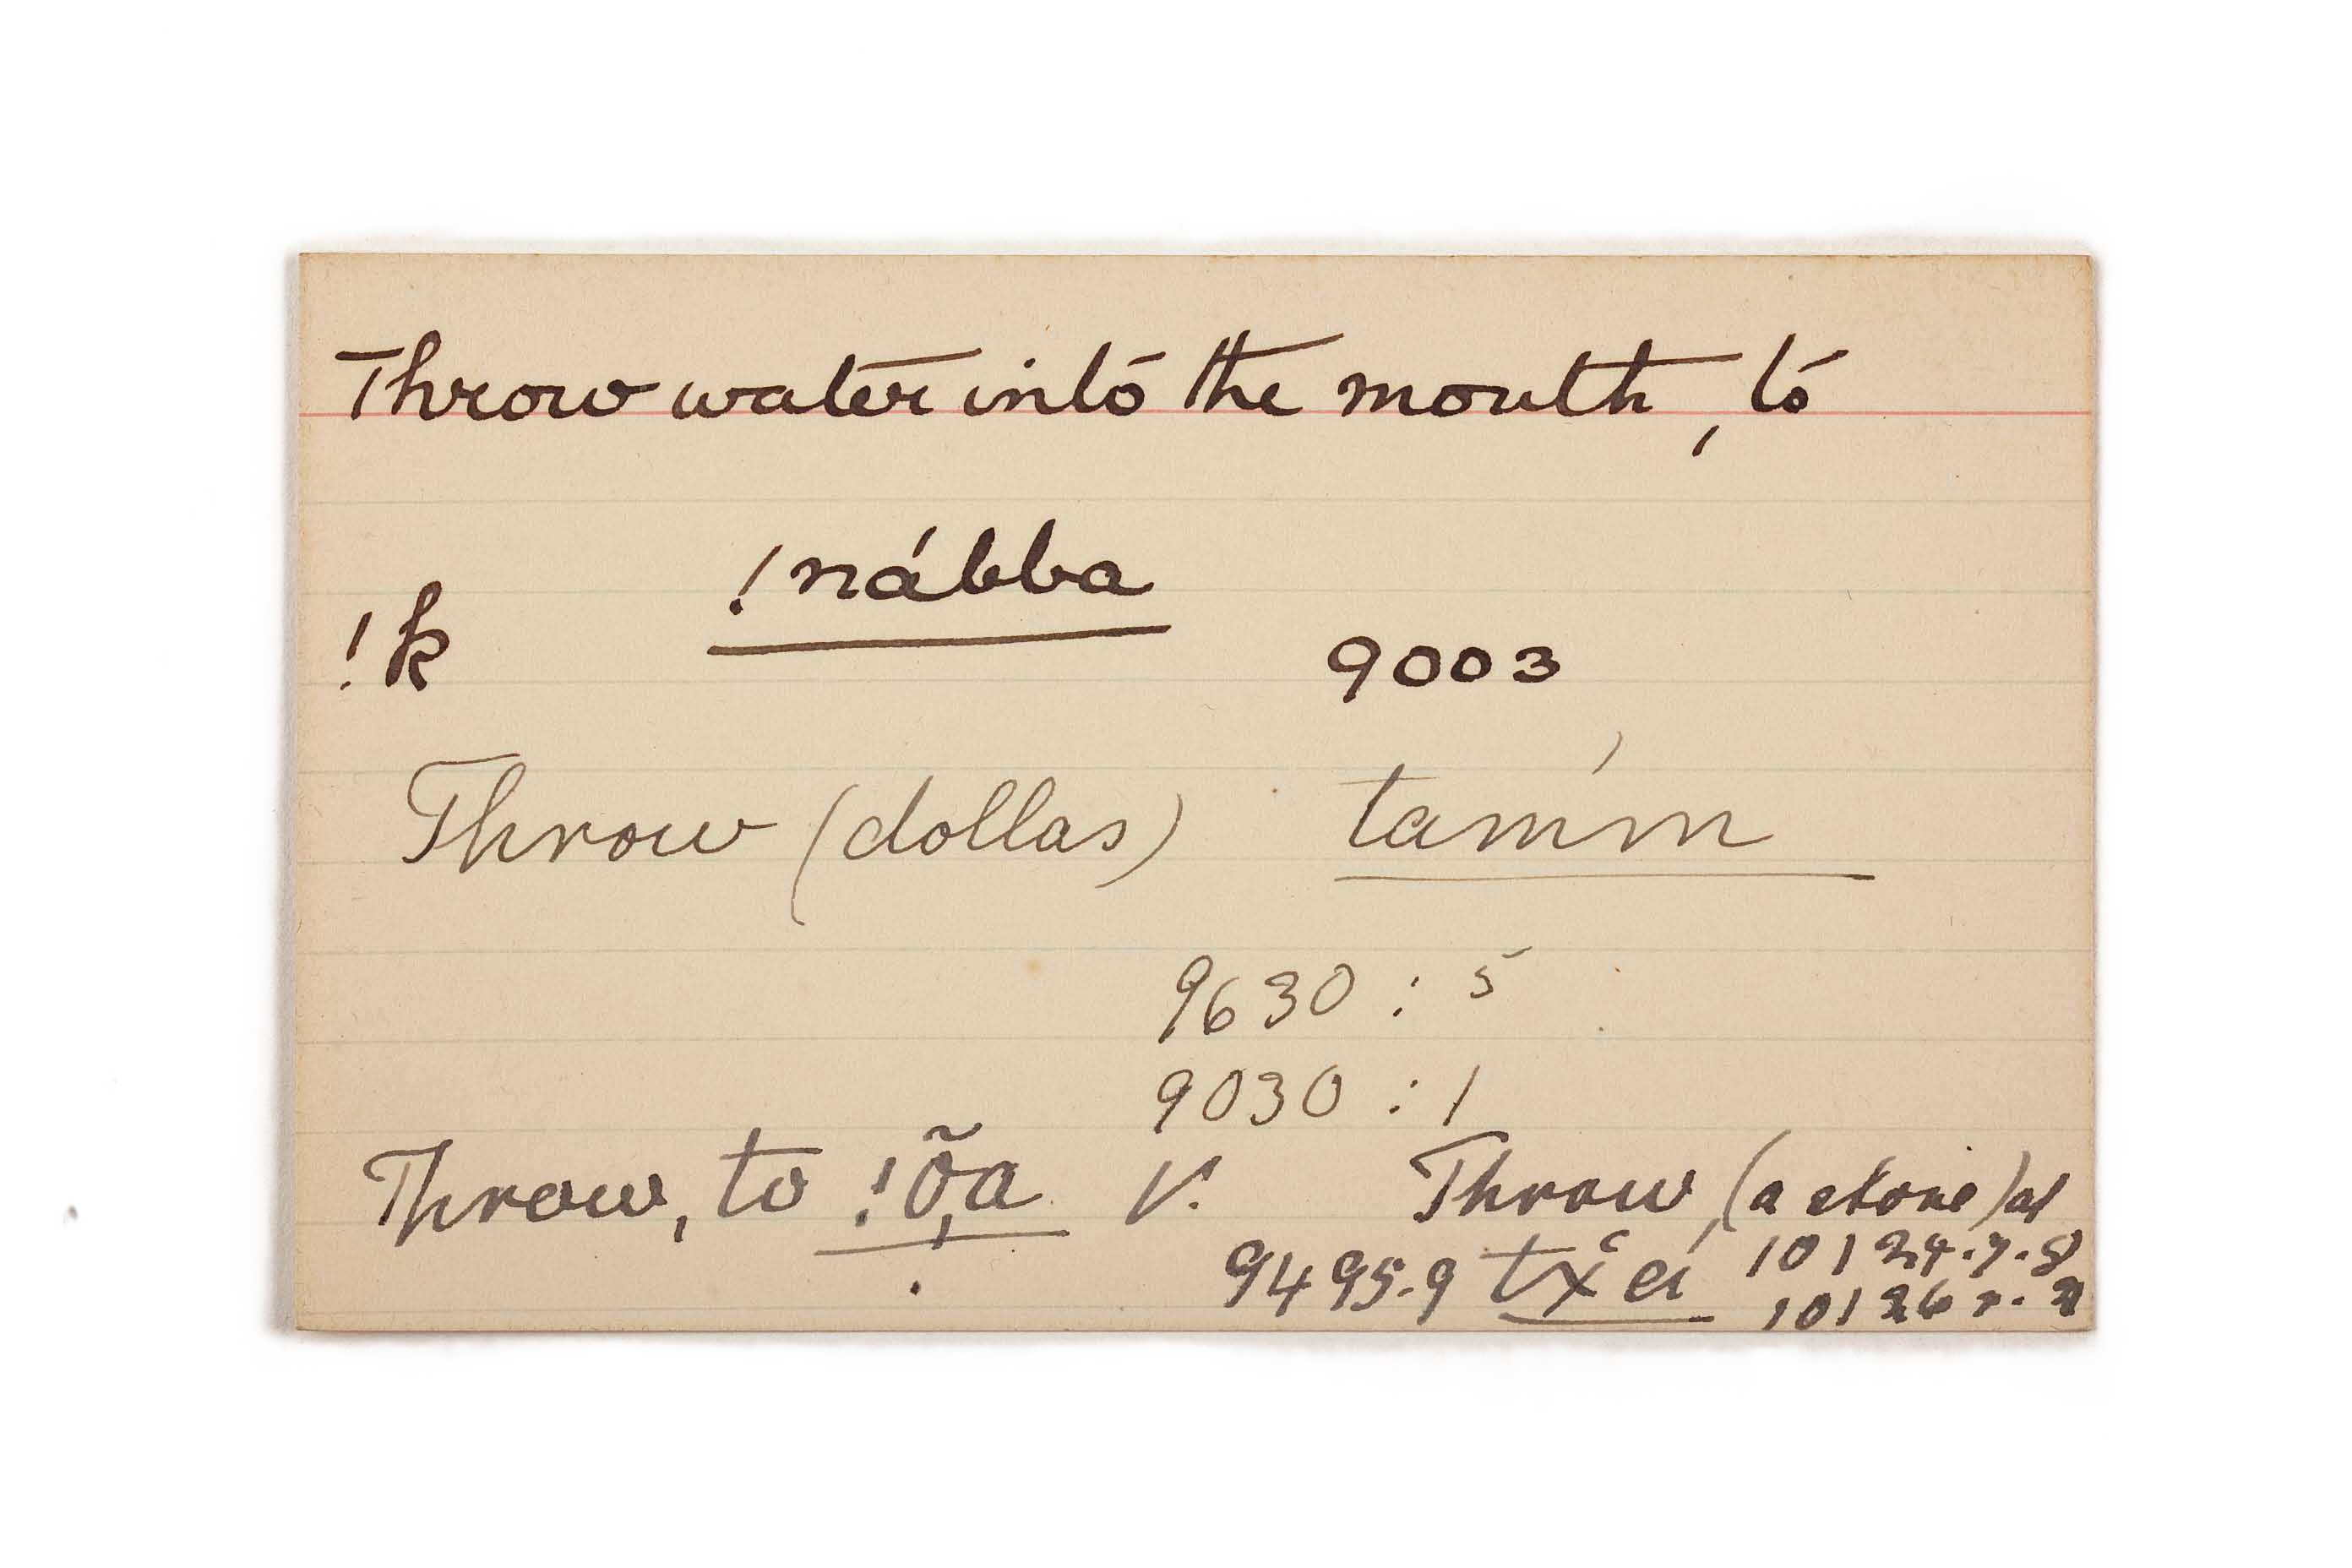 Throw water into the mouth, to
!nábba
!k 9003
Throw (dollas) tamḿ
9630 : 5
9030 : 1
Throw, to !õ̦a V. Throw, (a stone) at
9495.9 txᶜei 10124.7.8
10126